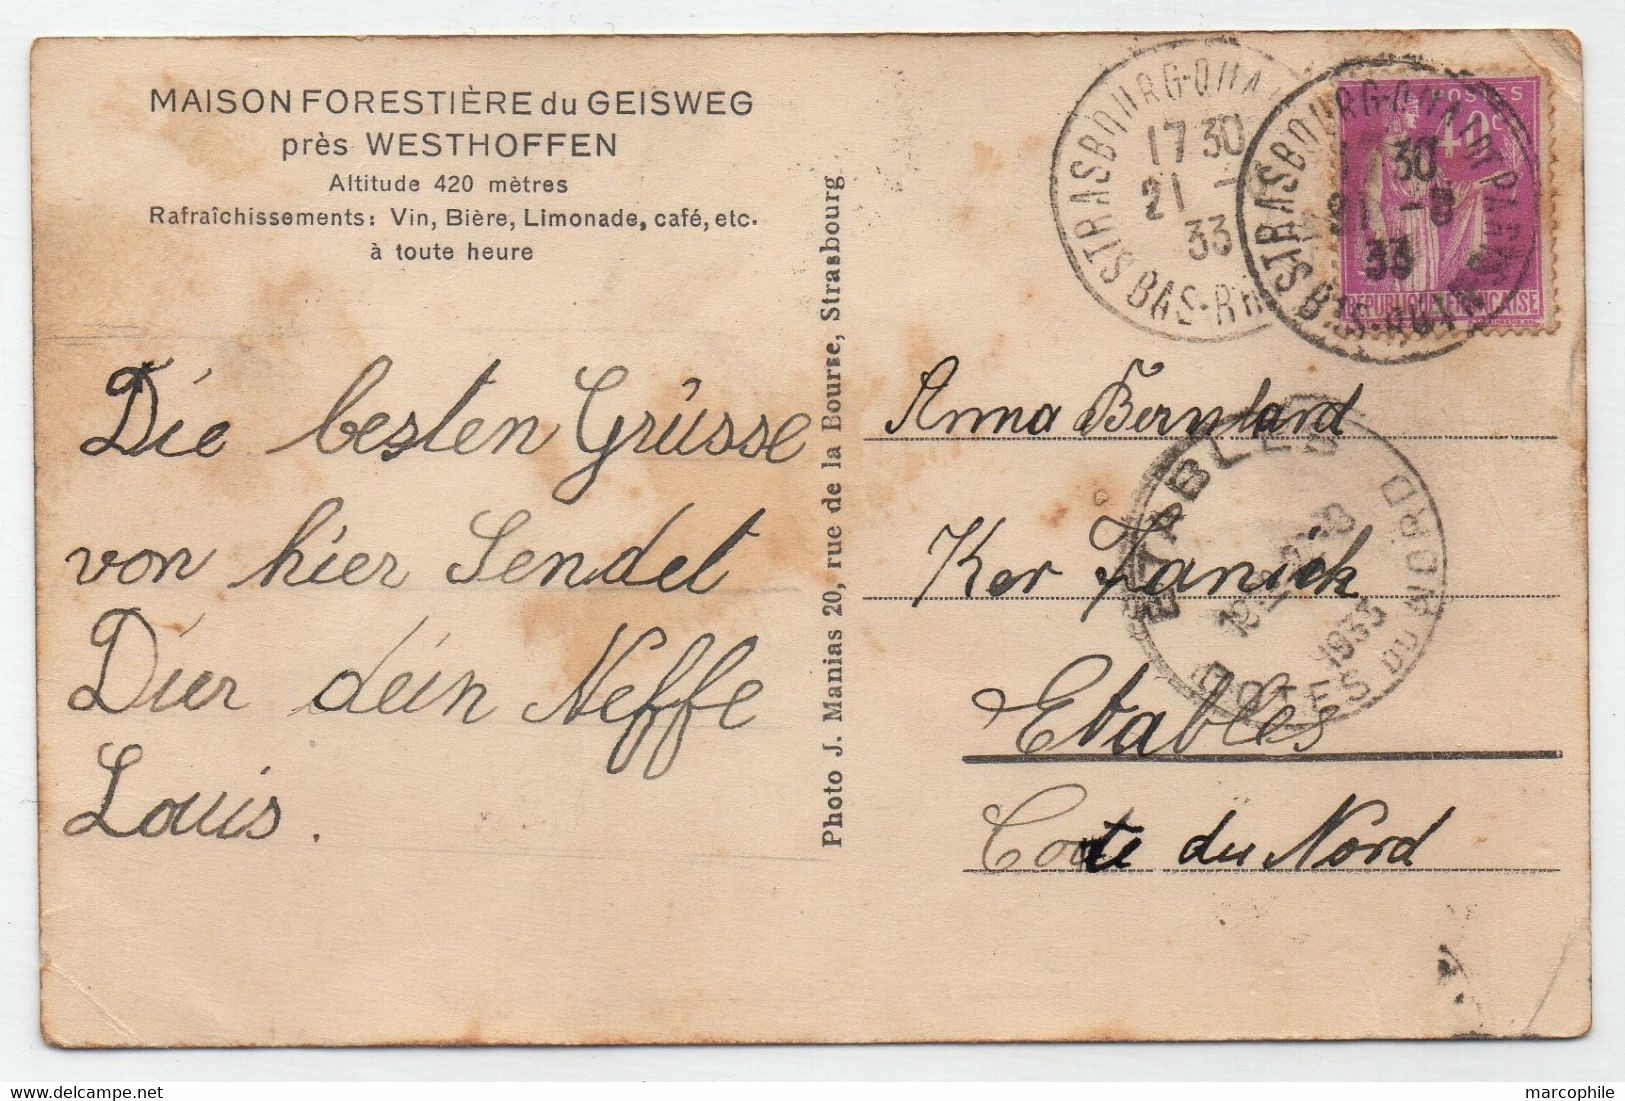 MAISON FORESTIÈRE du GEISWEG
près WESTHOFFEN
Altitude 420 mètres
Rafraîchissements: Vin, Bière, Limonade, café, etc.
à toute heure
Die besten Grüsse
von hier Sendet
Dier dein Neffe
Louis.
Photo J. Manias 20, rue de la Bourse, Strasbourg
STRASBOURG-QUAI
17 30
21 -
33
BAS-RHIN
STRASBOURG-QUAI DE PARIS
30
21 -8
33
BAS-RHIN
POSTES
40c
RÉPUBLIQUE FRANÇAISE
Anna Bernhard
Ker Janick
Etables
Cote du Nord
ETABLES
1933
COTES DU NORD
marcophile